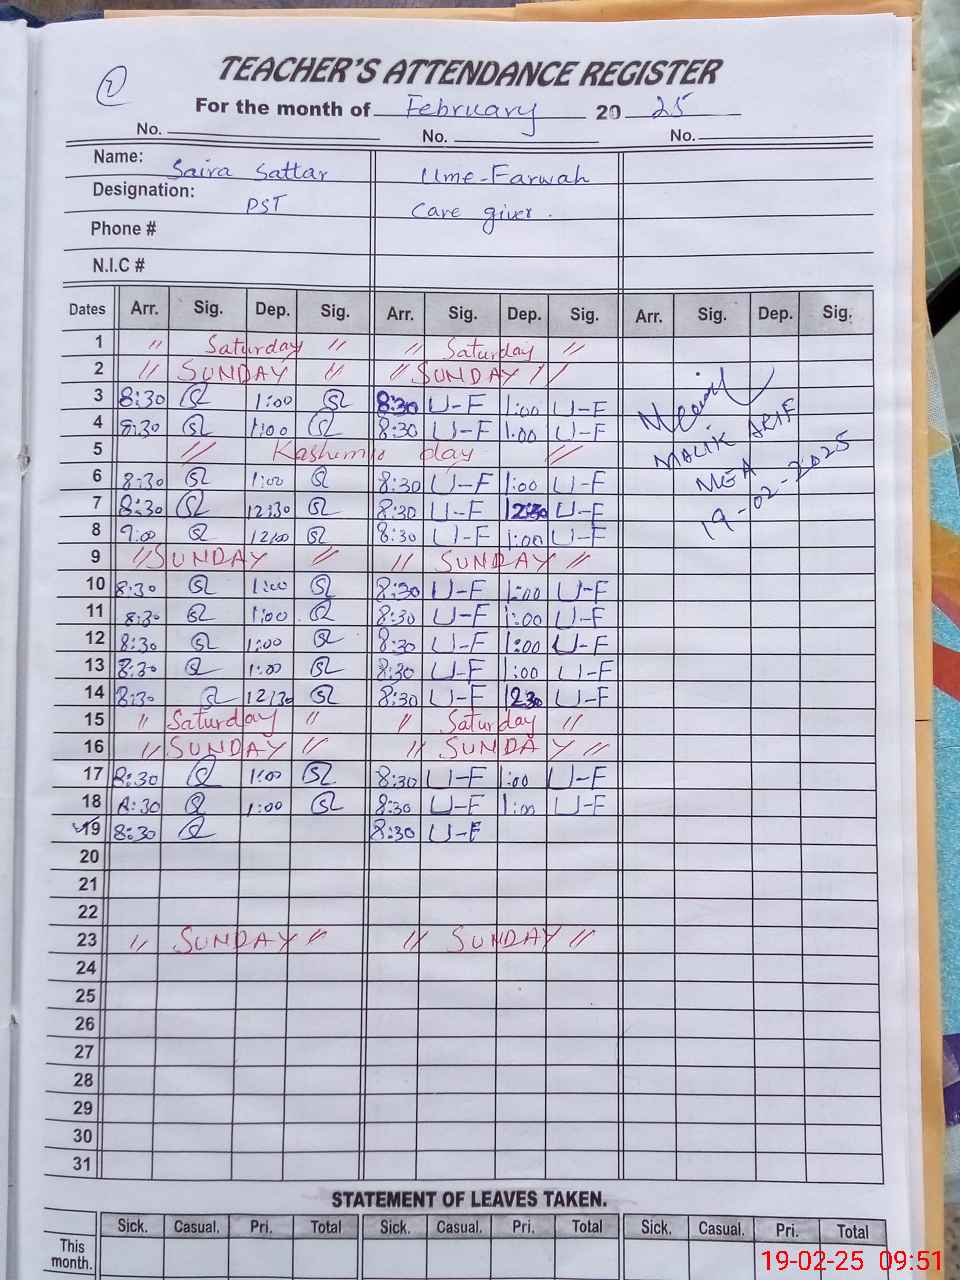 1
TEACHER'S ATTENDANCE REGISTER
For the month of February 2025
No. No. No.
Name: Saira Sattar Ume-Farwah
Designation: PST Care giver.
Phone #
N.I.C #
Dates Arr. Sig. Dep. Sig. Arr. Sig. Dep. Sig. Arr. Sig. Dep. Sig.
1 " Saturday " " Saturday "
2 " SUNDAY " " SUNDAY "
3 8:30 S 1:00 S 8:30 U-F 1:00 U-F
4 8:30 S 1:00 S 8:30 U-F 1:00 U-F
5 " Kashmir day "
6 8:30 S 1:00 S 8:30 U-F 1:00 U-F
7 8:30 S 12:30 S 8:30 U-F 12:30 U-F
8 9:00 S 12:00 S 8:30 U-F 1:00 U-F
9 " SUNDAY " " SUNDAY "
10 8:30 S 1:00 S 8:30 U-F 1:00 U-F
11 8:30 S 1:00 S 8:30 U-F 1:00 U-F
12 8:30 S 1:00 S 8:30 U-F 1:00 U-F
13 8:30 S 1:00 S 8:30 U-F 1:00 U-F
14 8:30 S 12:30 S 8:30 U-F 12:30 U-F
15 " Saturday " " Saturday "
16 " SUNDAY " " SUNDAY "
17 8:30 S 1:00 S 8:30 U-F 1:00 U-F
18 8:30 S 1:00 S 8:30 U-F 1:00 U-F
19 8:30 S 8:30 U-F
20
21
22
23 " SUNDAY " " SUNDAY "
24
25
26
27
28
29
30
31
MALIK ARIF
MEA
19-02-2025
STATEMENT OF LEAVES TAKEN.
Sick. Casual. Pri. Total Sick. Casual. Pri. Total Sick. Casual. Pri. Total
This month.
19-02-25 09:51